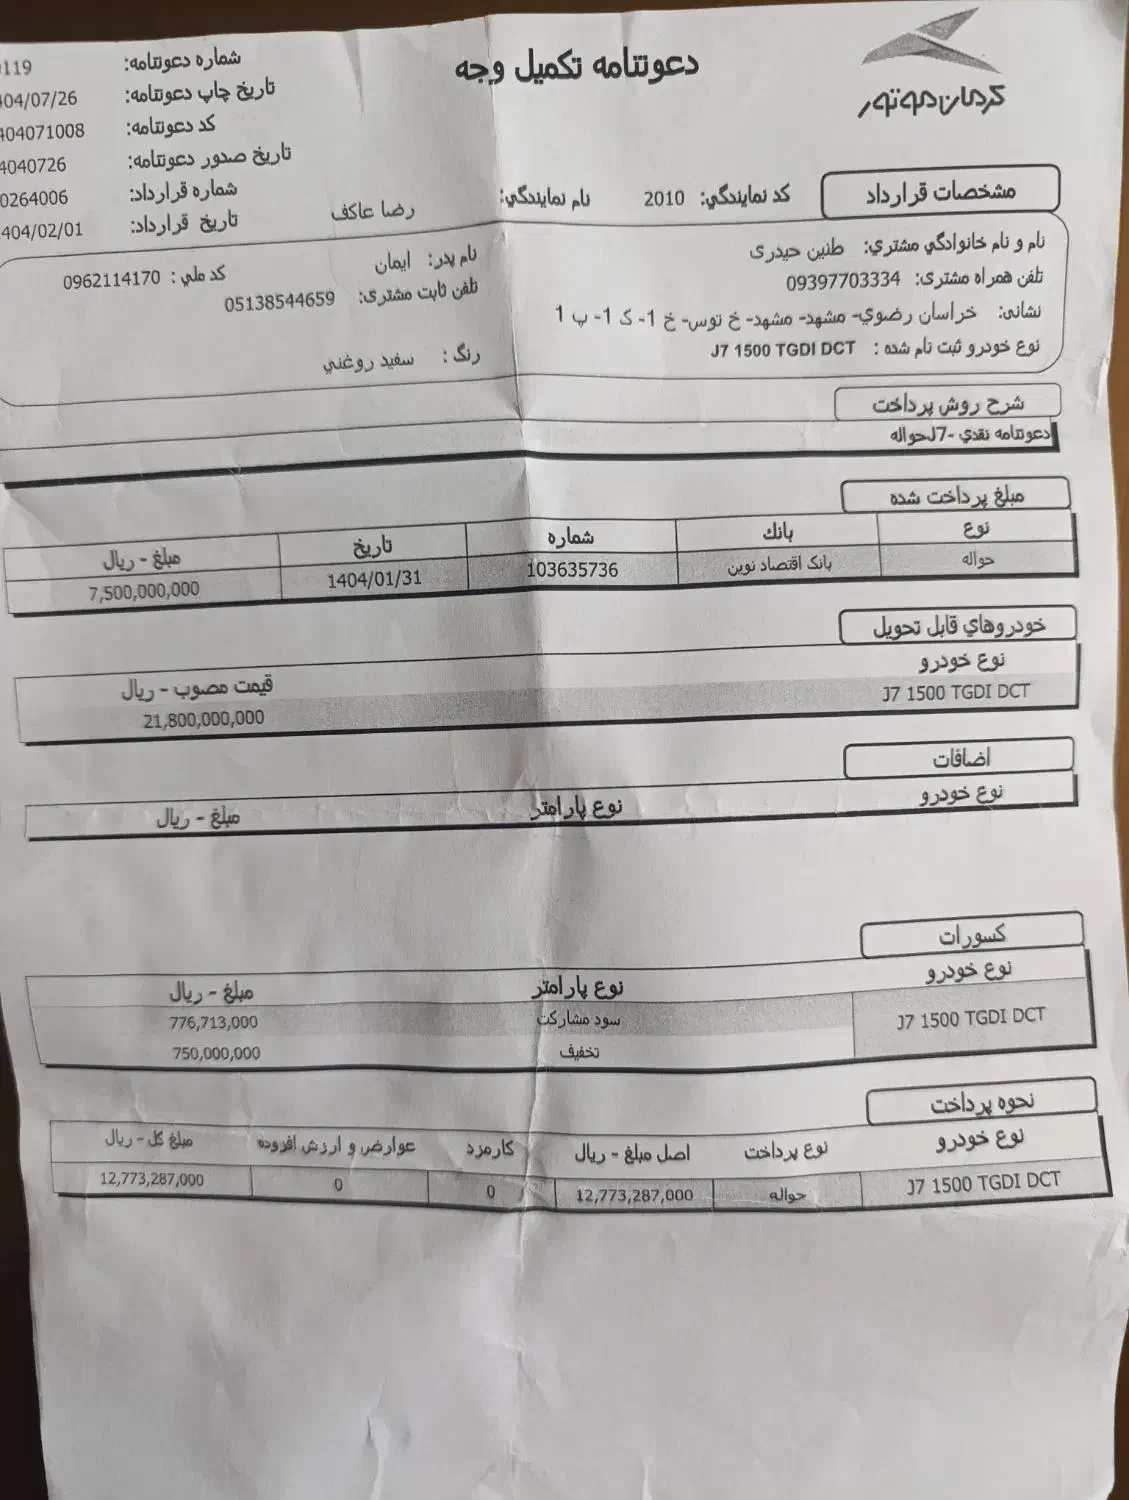 کرمان موتور
دعوتنامه تکمیل وجه
شماره دعوتنامه: 119
تاریخ چاپ دعوتنامه: 404/07/26
کد دعوتنامه: 404071008
تاریخ صدور دعوتنامه: 4040726
شماره قرارداد: 0264006
تاریخ قرارداد: 404/02/01
مشخصات قرارداد
کد نمایندگي: 2010 نام نمایندگي: رضا عاکف
نام و نام خانوادگي مشتري: طنین حیدری نام پدر: ایمان کد ملي : 0962114170
تلفن همراه مشتری: 09397703334 تلفن ثابت مشتری: 05138544659
نشانی: خراسان رضوي- مشهد- مشهد- خ توس- خ 1- ک 1- پ 1
نوع خودرو ثبت نام شده : J7 1500 TGDI DCT رنگ : سفید روغني
شرح روش پرداخت
دعوتنامه نقدي -J7حواله
مبلغ پرداخت شده
نوع بانك شماره تاریخ مبلغ - ریال
حواله بانک اقتصاد نوین 103635736 1404/01/31 7,500,000,000
خودروهاي قابل تحویل
نوع خودرو قیمت مصوب - ریال
J7 1500 TGDI DCT 21,800,000,000
اضافات
نوع خودرو نوع پارامتر مبلغ - ریال
کسورات
نوع خودرو نوع پارامتر مبلغ - ریال
J7 1500 TGDI DCT سود مشارکت 776,713,000
تخفیف 750,000,000
نحوه پرداخت
نوع خودرو نوع پرداخت اصل مبلغ - ریال کارمزد عوارض و ارزش افزوده مبلغ کل - ریال
J7 1500 TGDI DCT حواله 12,773,287,000 0 0 12,773,287,000